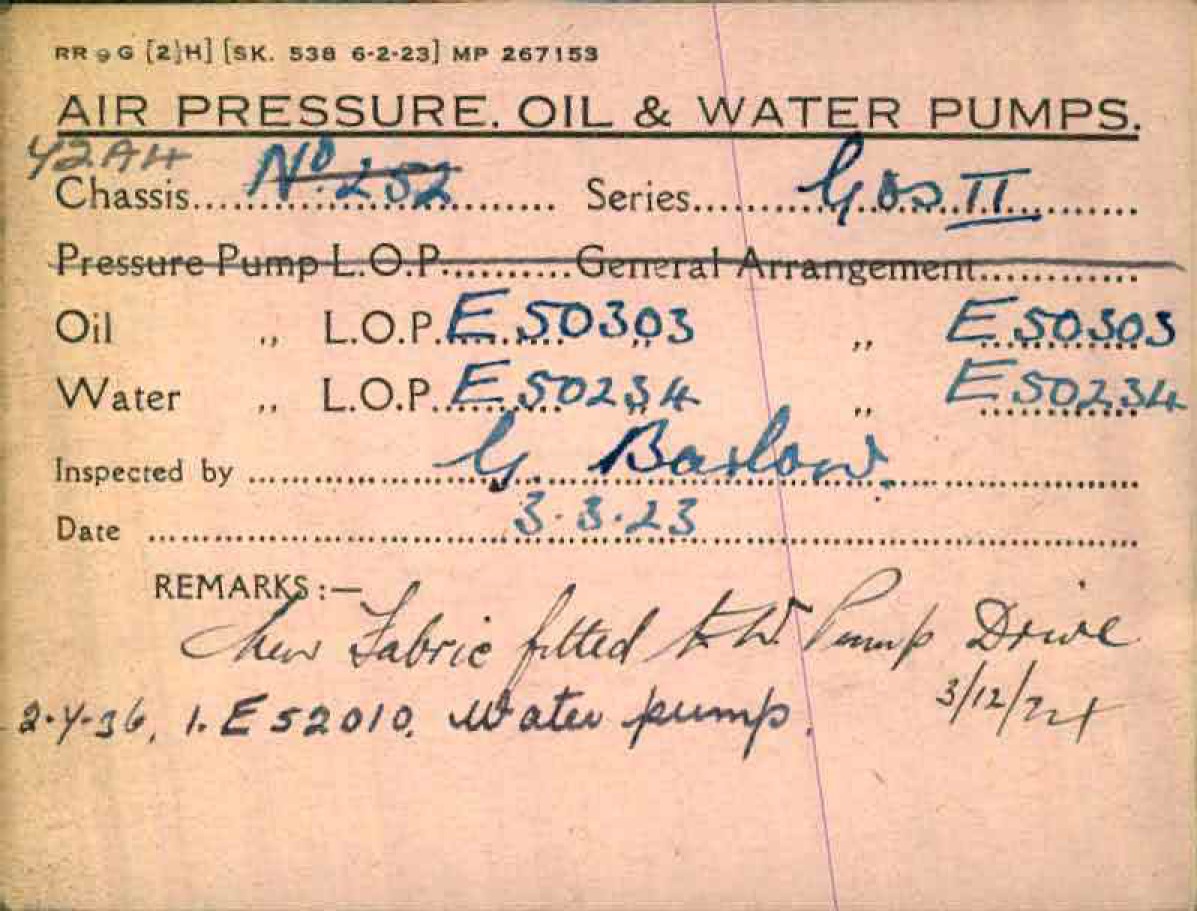 RR 9 G [2)H] [SK. 538 6-2-23] MP 267153
AIR PRESSURE. OIL & WATER PUMPS.
42AH
Chassis.... No. 252 .... Series.... Gos II
Pressure Pump L.O.P.......... General Arrangement............
Oil ,, L.O.P. E50303 ,, E50303
Water ,, L.O.P. E50234 ,, E50234
Inspected by .... G. Barlow.
Date .... 3.3.23
REMARKS :—
New Fabric fitted to W Pump Drive
3/12/24
2-4-36, 1. E52010. Water pump.